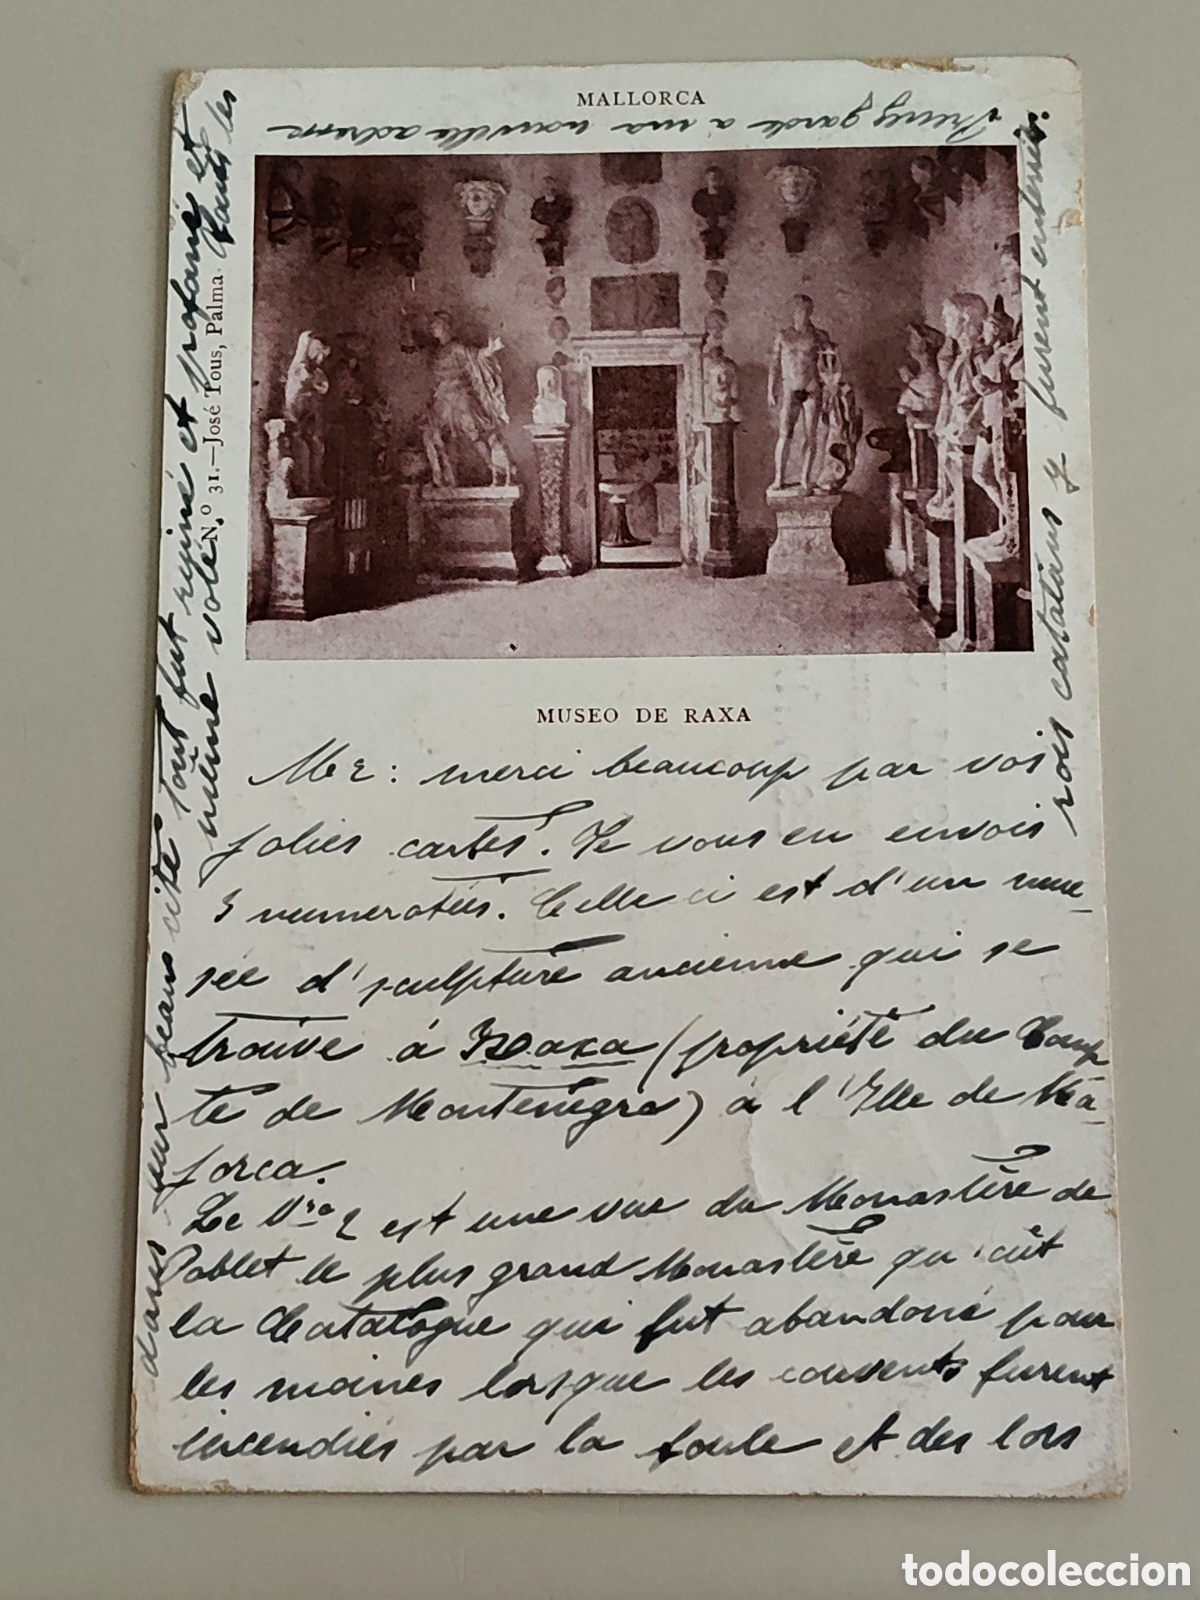 MALLORCA
Preney garde a ma nouvelle adresse
N.º 31.—José Tous, Palma
MUSEO DE RAXA
Mr: merci beaucoup par vos
jolies cartes. Je vous en envois
3 numerotées. Celle ci est d'un mu-
sée d'sculpture ancienne qui se
trouve á Raxa (propriété du Comp
te de Montenegro) á l'Ille de Ma-
jorca.
Le Nro 2 est une vue du Monastère de
Poblet le plus grand Monastère qu'eût
la Catalogue qui fut abandoné pour
les moines lorsque les couvents furent
incendiés par la foule et des lors
dans sur beaux cité tout fut ruiné et profané et
même volé. Tauts les
rois catalans y furent enterrés
todocoleccion